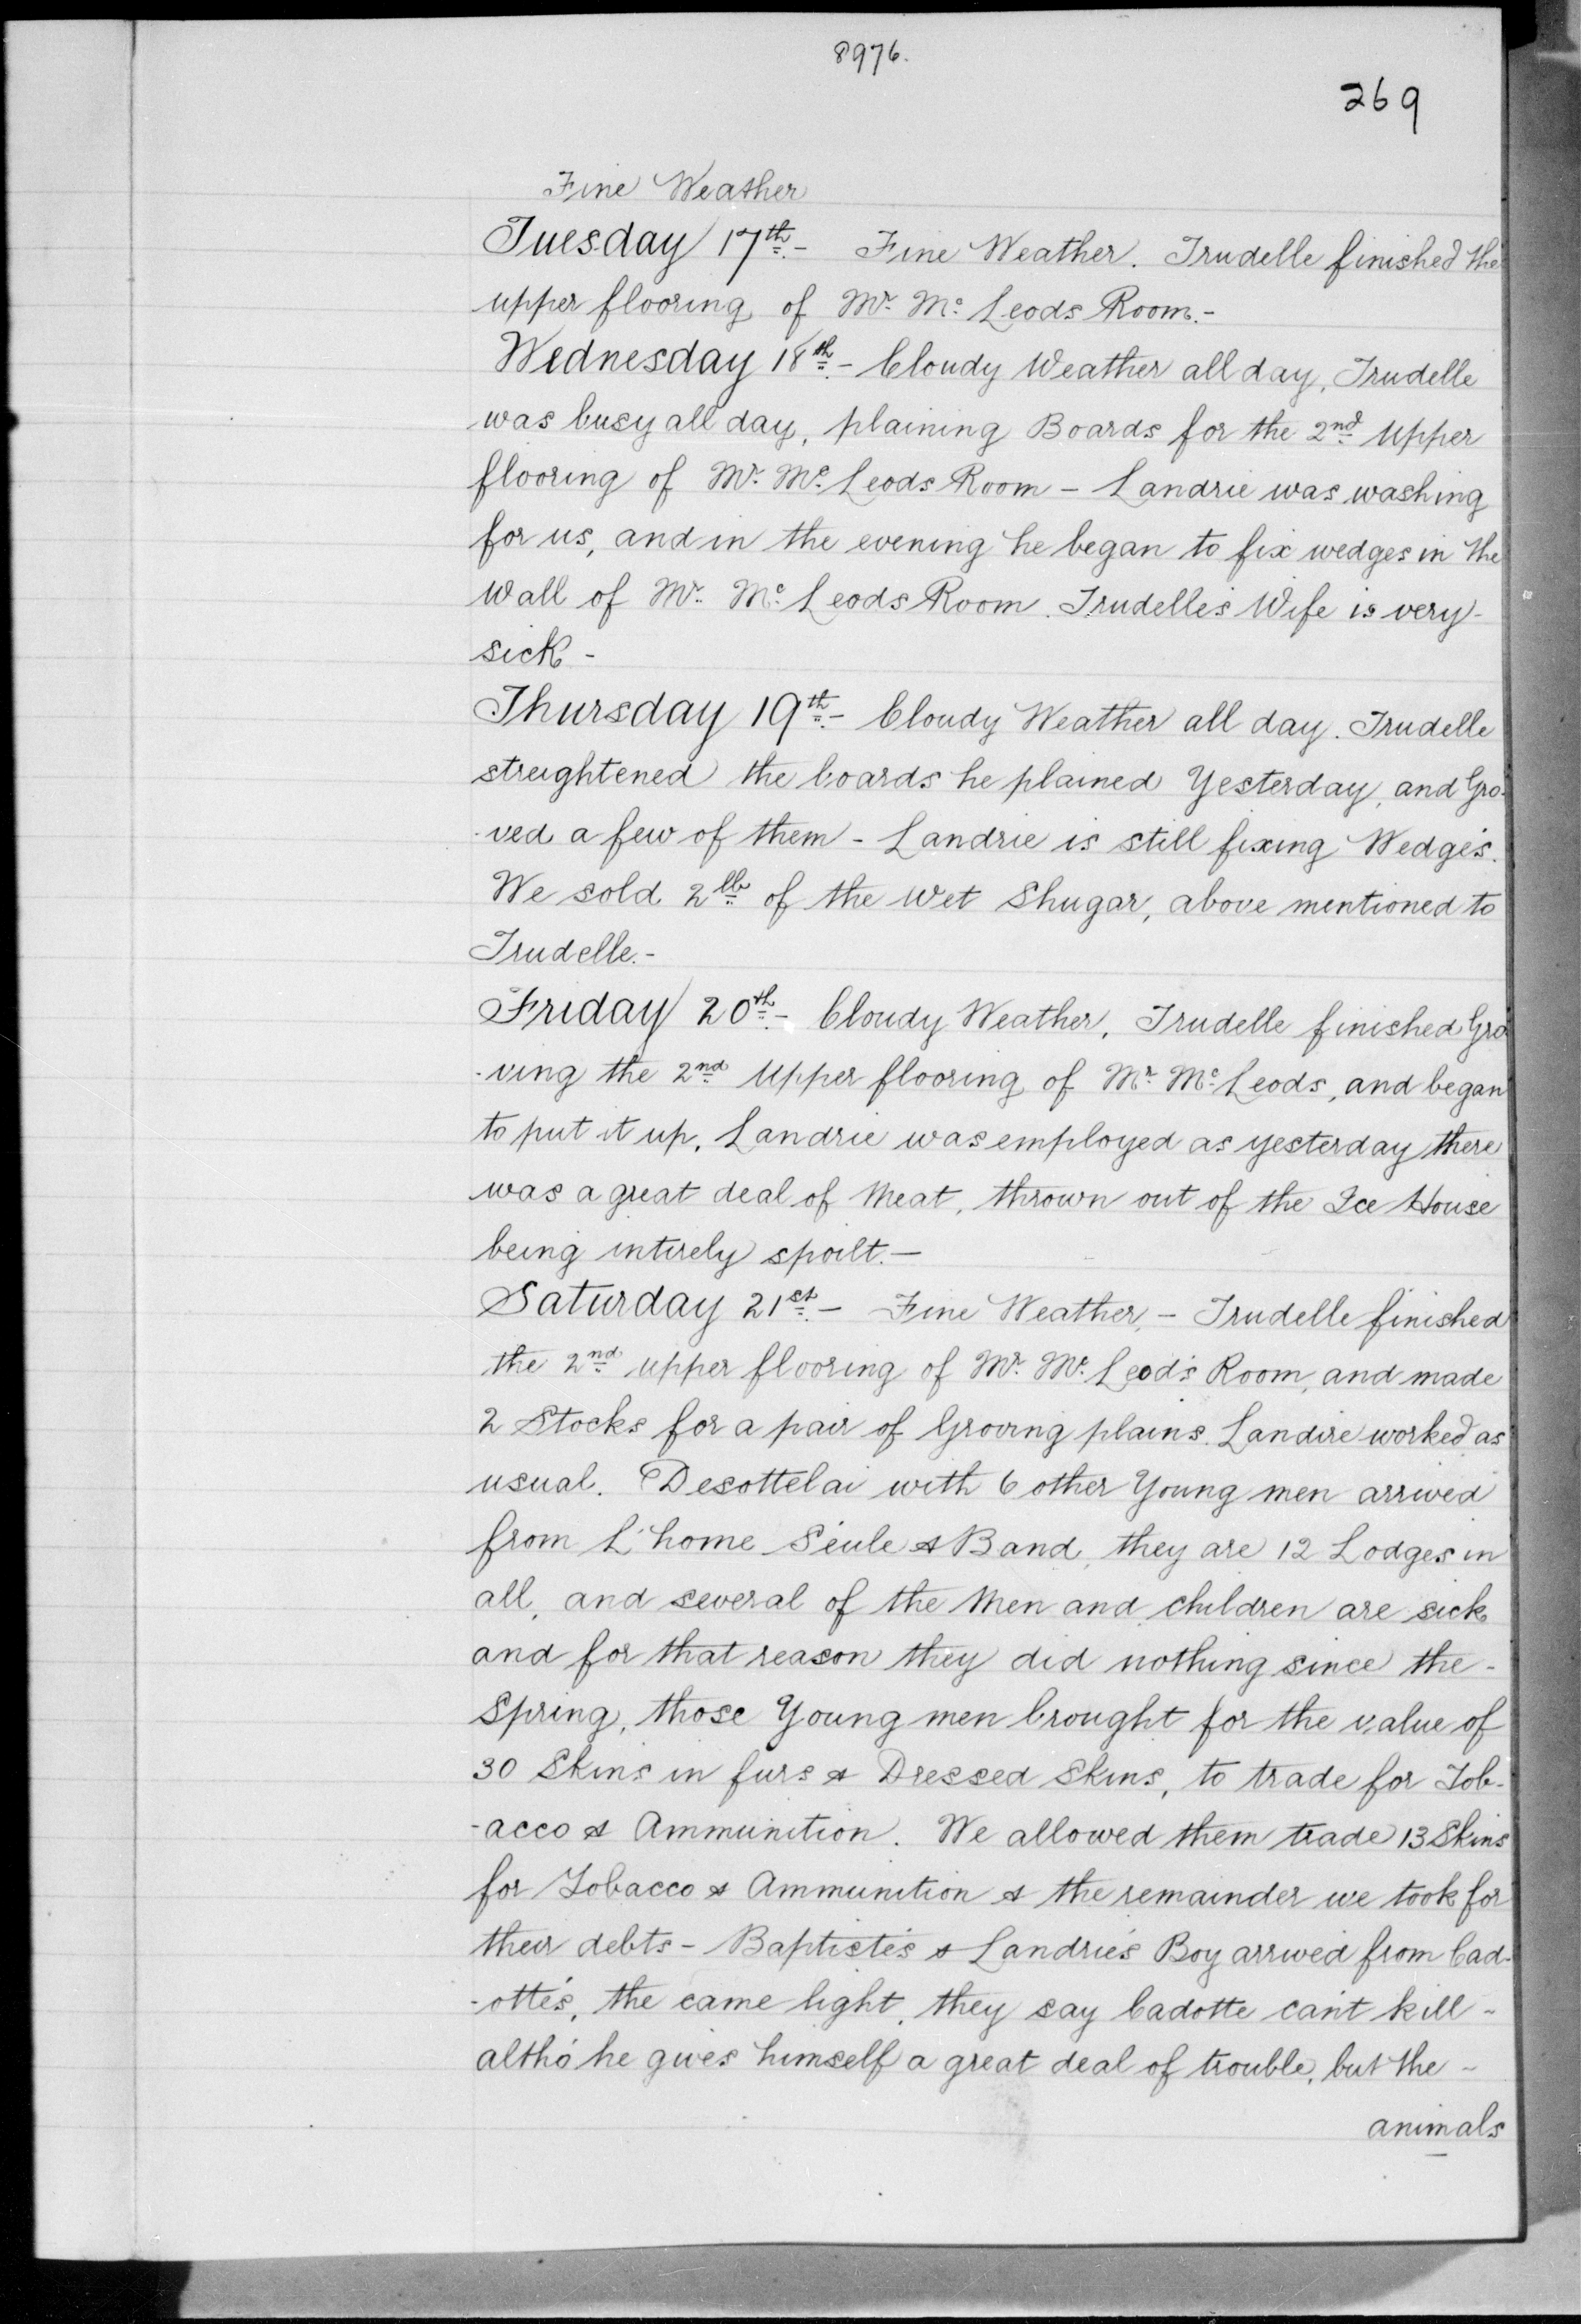 8976.
269
Fine Weather
Tuesday 17th.- Fine Weather. Trudelle finished the
upper flooring of Mr. Mc. Leods Room.-
Wednesday 18th.- Cloudy Weather all day, Trudelle
was busy all day, plaining Boards for the 2nd Upper
flooring of Mr. Mc. Leods Room - Landrie was washing
for us, and in the evening he began to fix wedges in the
Wall of Mr. Mc. Leods Room. Trudelle's Wife is very-
sick -
Thursday 19th.- Cloudy Weather all day. Trudelle
streightened the boards he plained Yesterday, and Gro-
-ved a few of them - Landrie is still fixing Wedge's.
We sold 2lb of the wet Shugar, above mentioned to
Trudelle.-
Friday 20th.- Cloudy Weather, Trudelle finished Gro
-ving the 2nd Upper flooring of Mr. Mc. Leods, and began
to put it up, Landrie was employed as yesterday there
was a great deal of Meat, thrown out of the Ice House
being intirely spoilt.—
Saturday 21st.- Fine Weather, - Trudelle finished
the 2nd upper flooring of Mr. Mc. Leod's Room, and made
2 Stocks for a pair of Groving plains. Landire worked as
usual. Desottelai with 6 other Young men arrived
from L'home Seule & Band, they are 12 Lodges in
all, and several of the Men and children are sick
and for that reason they did nothing since the-
Spring, those Young men brought for the value of
30 Skins in furs & Dressed Skins, to trade for Tob-
-acco & Ammunition. We allowed them trade 13 Skins
for Tobacco & Ammunition & the remainder we took for
their debts - Baptiste's & Landrie's Boy arrived from Cad-
-otte's, the came light, they say Cadotte can't kill -
altho' he gives himself a great deal of trouble, but the -
animals